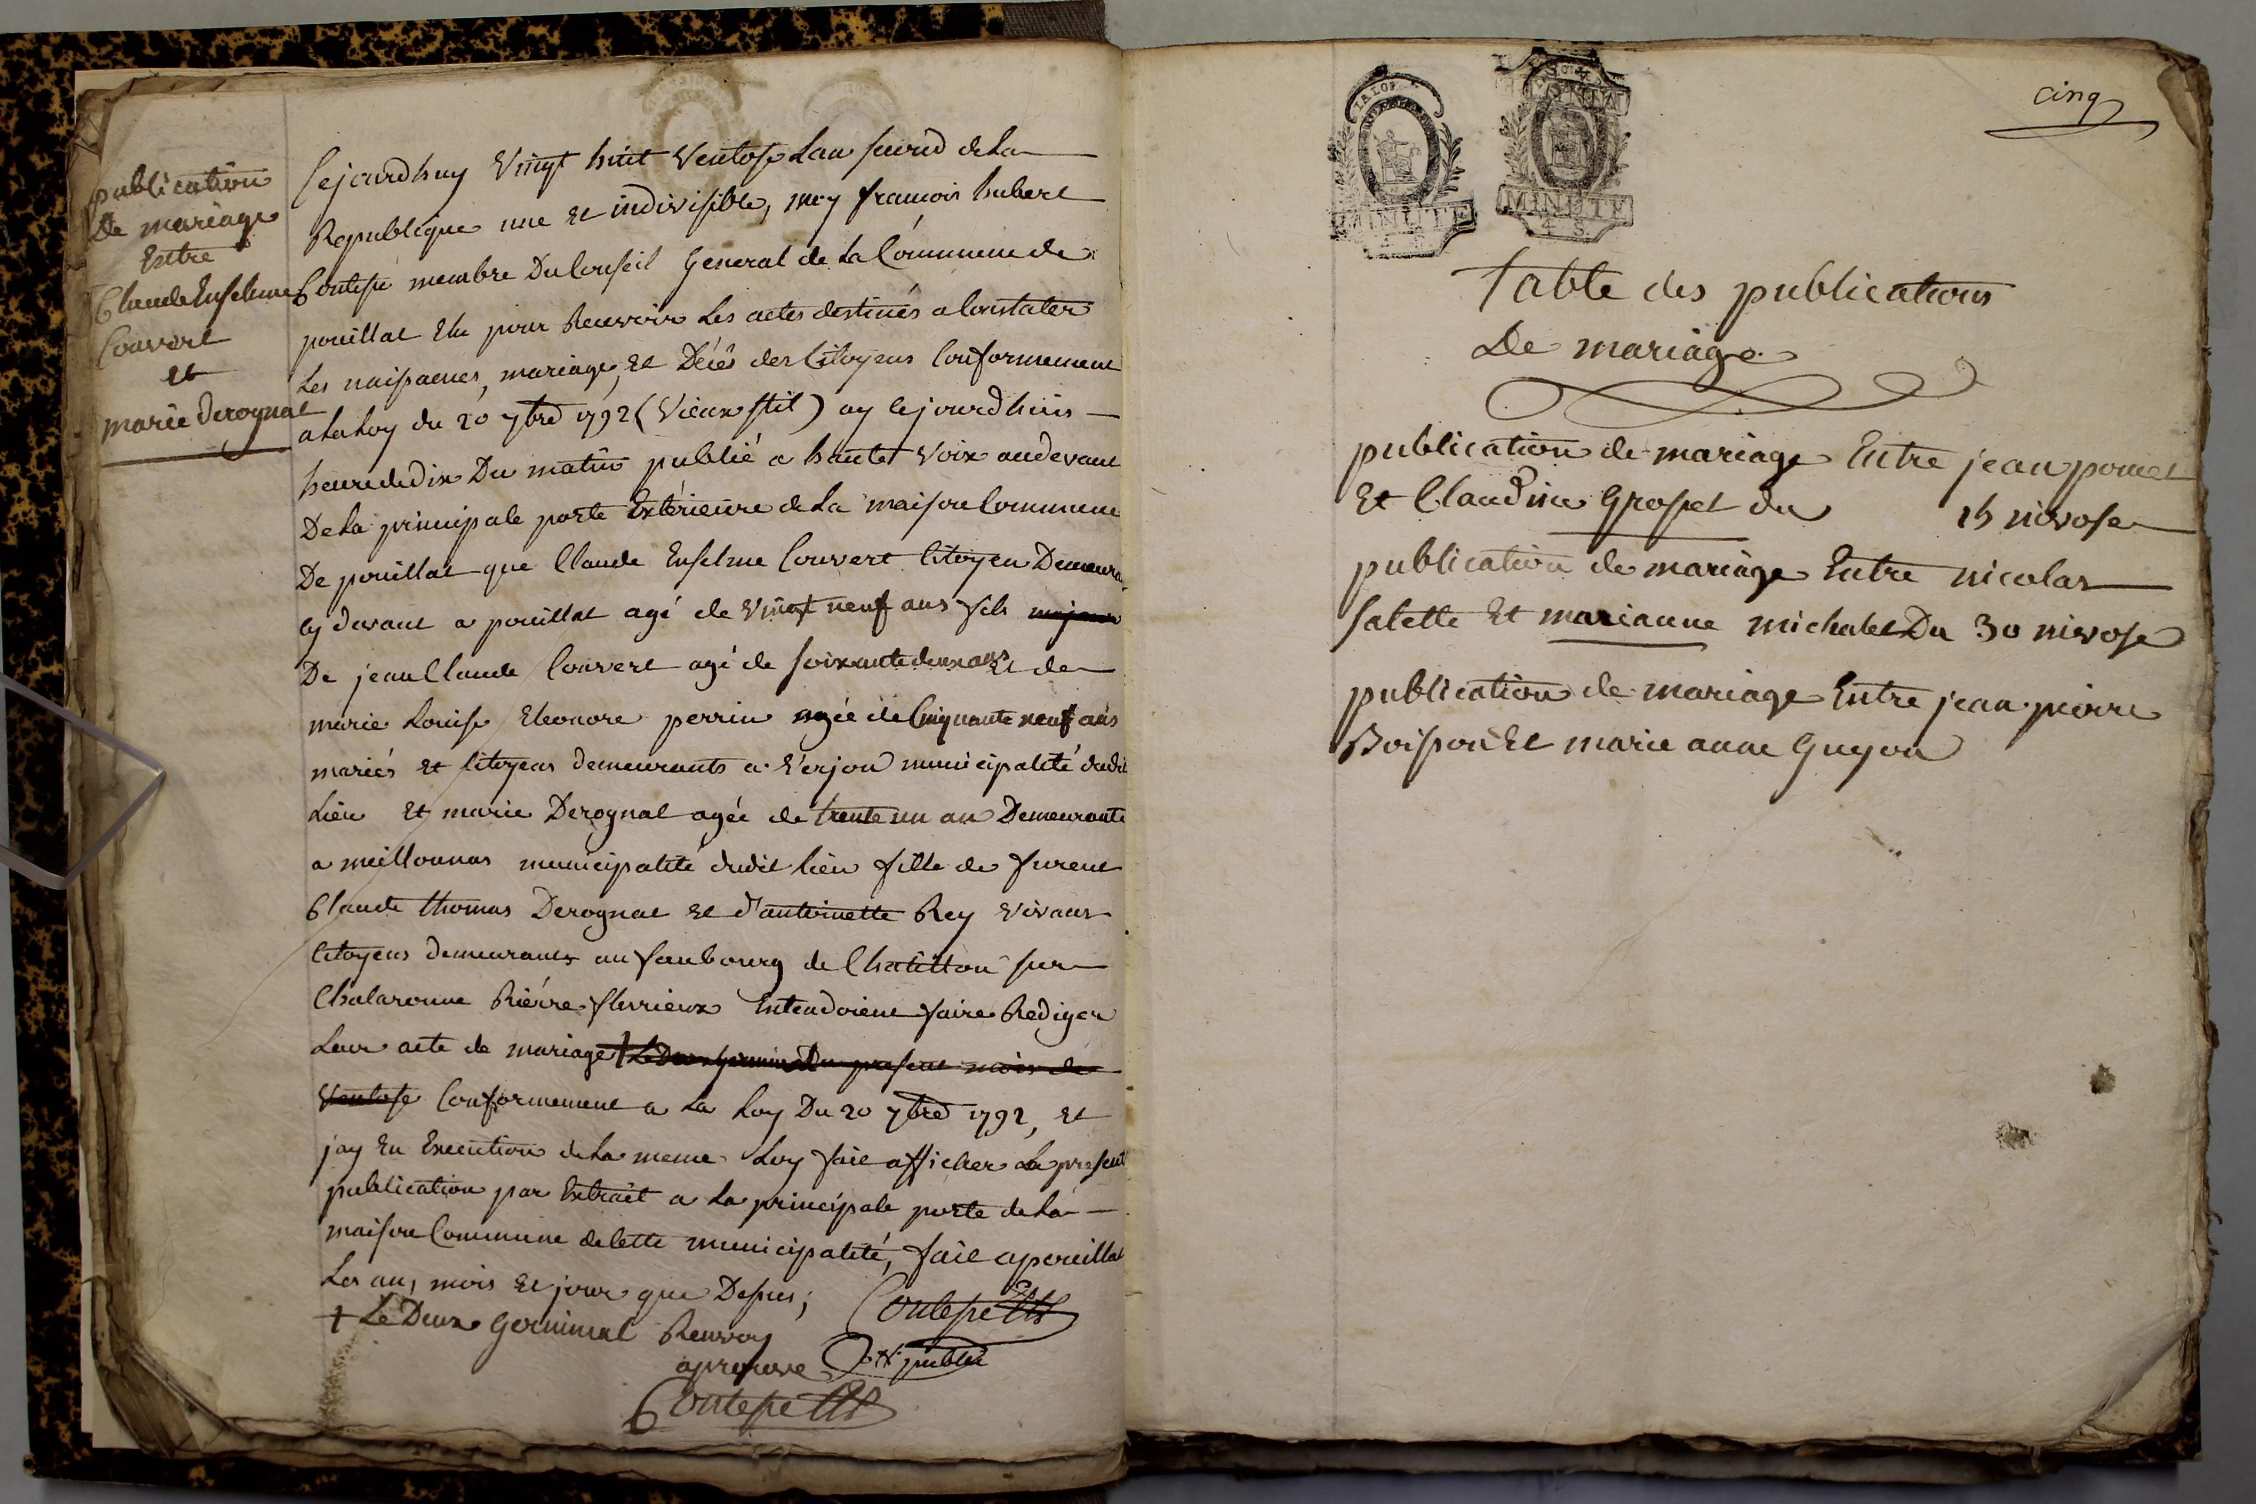 publication
De mariage
Entre
Claude Enselme
Couvert
et
marie Derognat
Cejourdhuy Vingt huit Ventose Lan second dela
Republique une et indivisible, moy francois hubert
Contepé membre Du Conseil General de la Commune de
pouillat Elu pour Recevoir Les actes destinés a Constater
Les naissances, mariage, et Décés des Citoyens Conformement
ala Loy du 20 7bre 1792 (Vieux stil) ay cejourdhuis
heure de dix Du matin publié a haute Voix audevant
De la principale porte Extérieure de La maison Commune
De pouillat que Claude Enselme Couvert Citoyen Demeura
cy devant a pouillat agé de Vingt neuf ans fils majeur
De jean Claude Couvert agé de soixante deux ans Et de
marie Louise Eleonore perrin agée de Cinquante neuf ans
mariés et Citoyens demeurants a Verjon municipalité dudit
Lieu Et marie Derognat agée de trente un an Demeurante
a meillonnas municipalité dudit lieu fille de furent
Claude thomas Derognat et d'antoinette Rey Vivans
Citoyens demeurants au faubourg de Chatillon sur
Chalaronne Riére flurrieux Entendoient faire Rediger
Leur acte de mariage † Le Deux germinal Du present mois de
Ventose Conformement a La Loy Du 20 7bre 1792, et
jay En Execution de La meme Loy fait afficher La present
publication par Extrait a La principale porte de La
maison Commune de Cette municipalité, fait a pouillat
Les an, mois Et jour que Dessus; Contepé
† Le Deux Germinal Renvoy
aprouve
publié
Contepé
cinq
MINUTE
4 S.
MINUTE
4 S.
Table des publications
De mariage
publication de mariage Entre jean poncet
Et Claudine Grosset du 15 nivose
publication de mariage Entre nicolas
salette Et marianne michalet Du 30 nivose
publication de mariage Entre jean pierre
Boisson Et marie anne Guyon